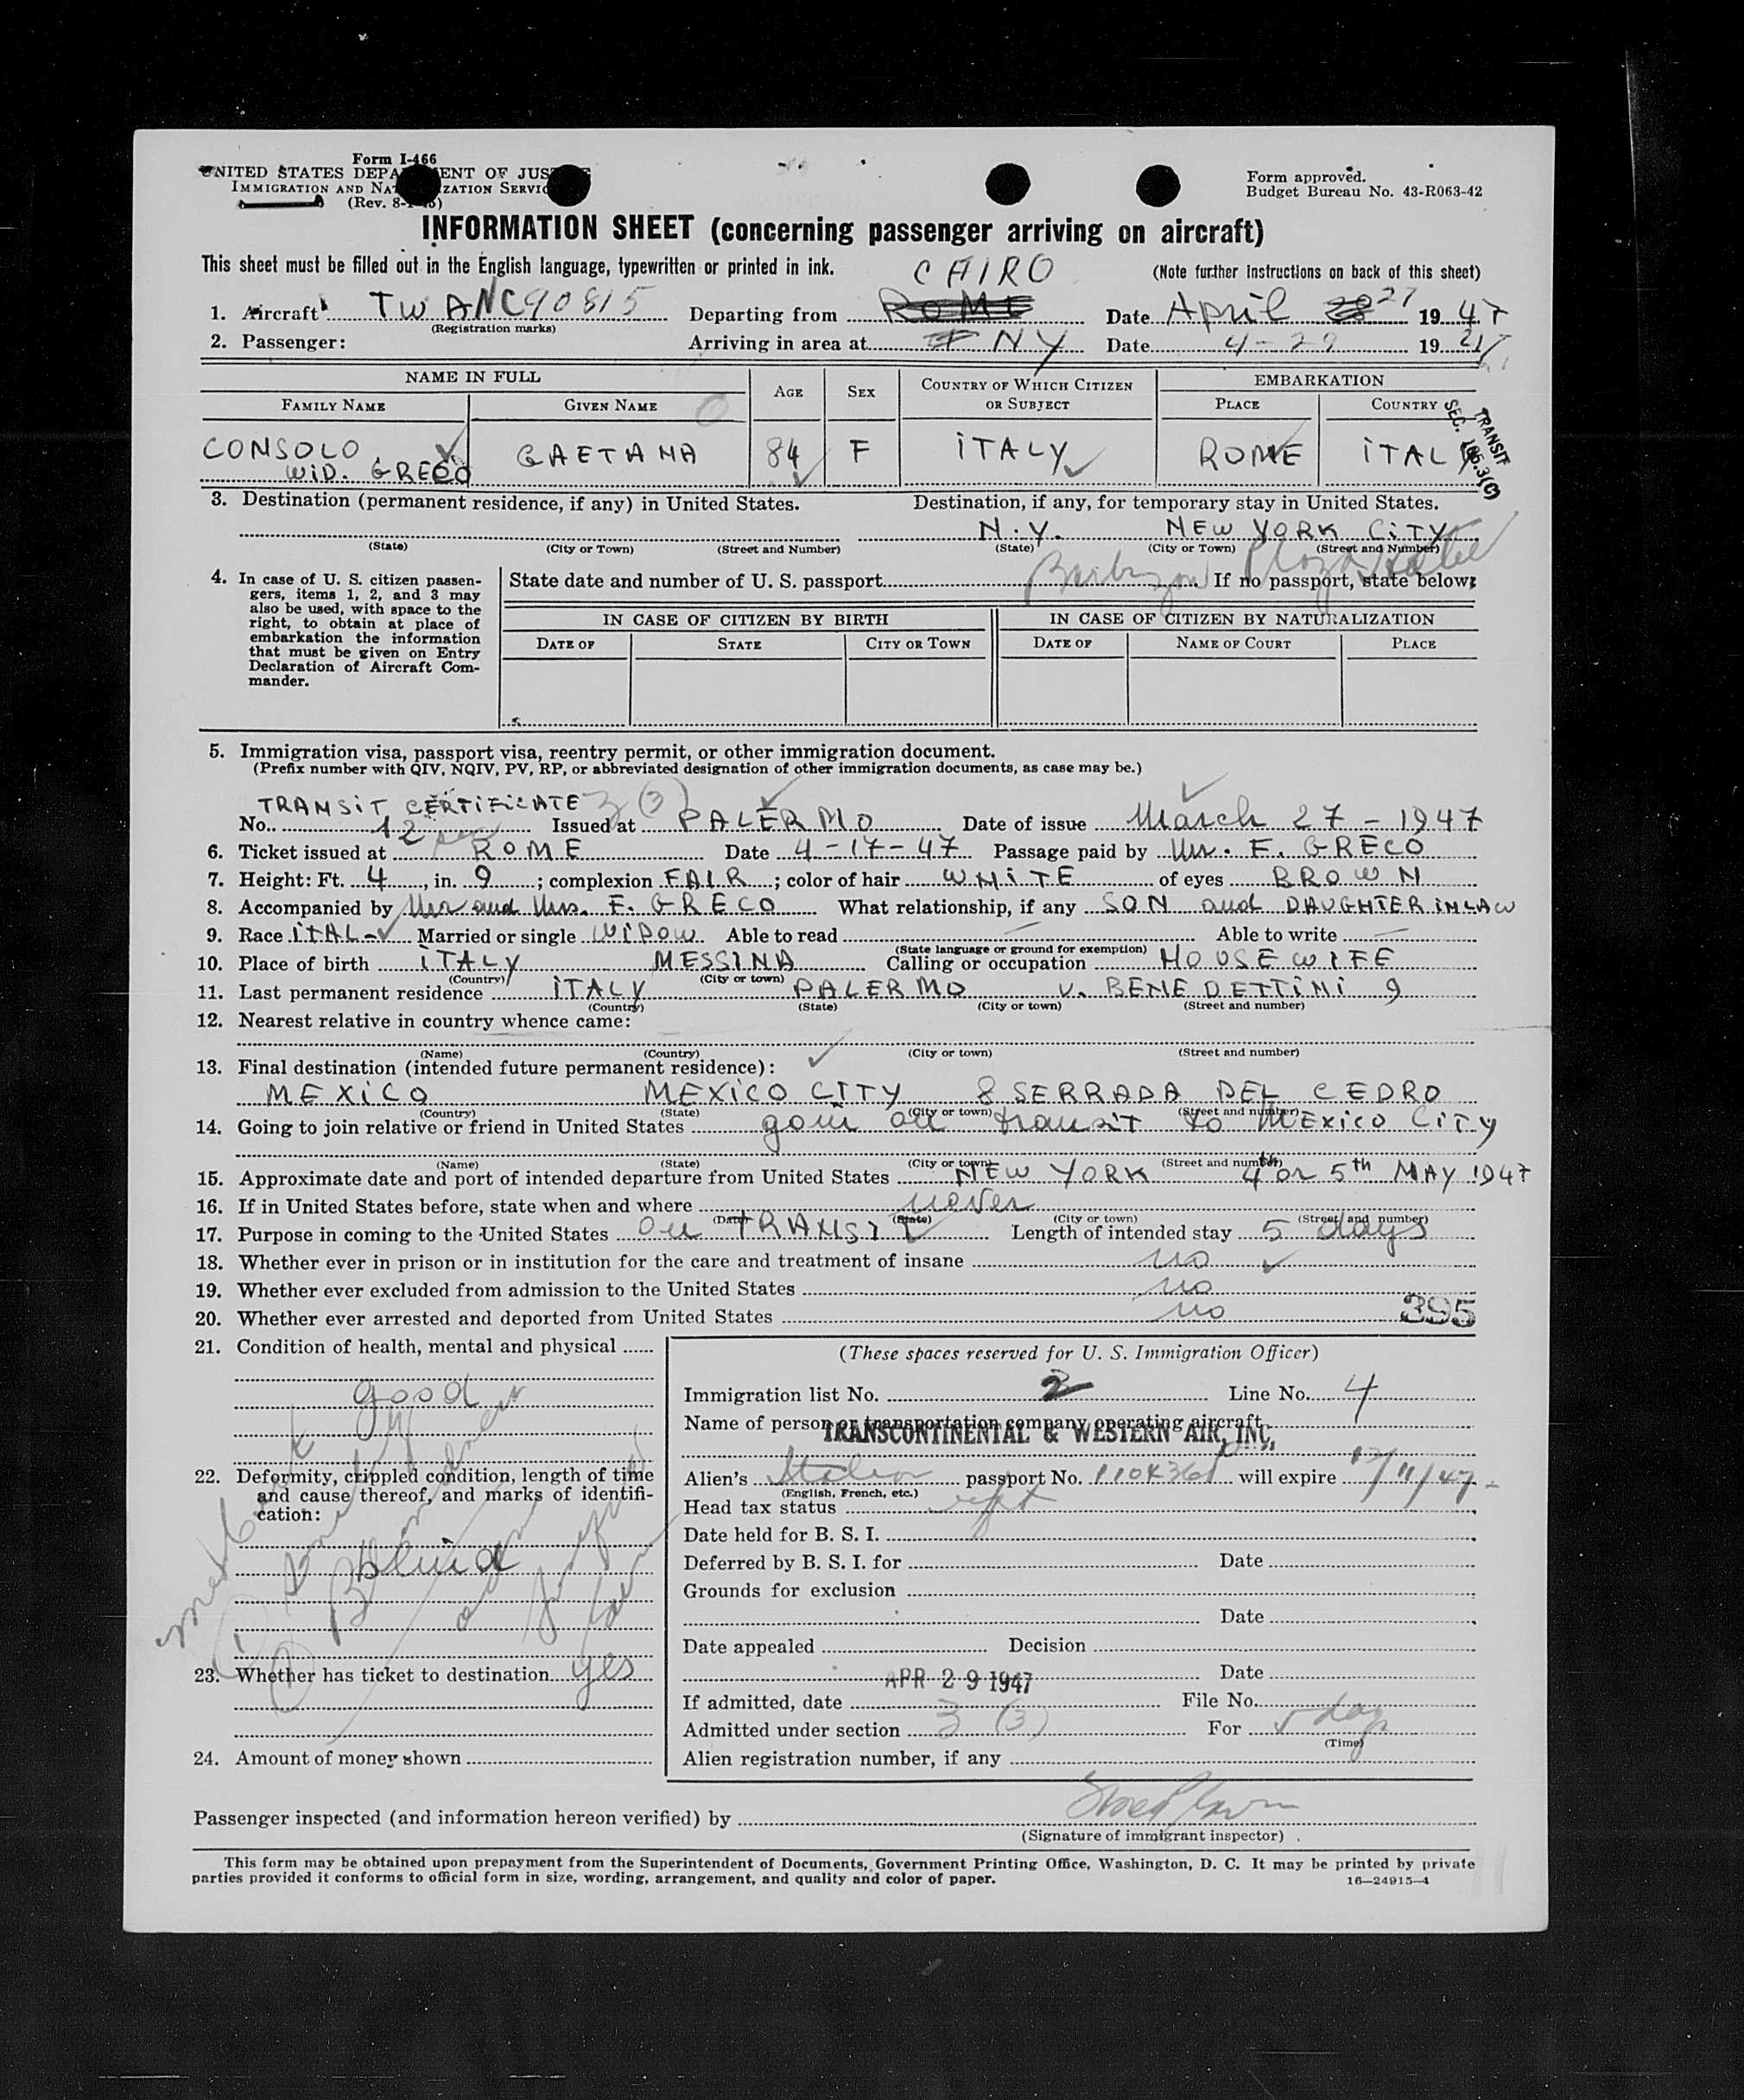 Form I-466
UNITED STATES DEPA ENT OF JUS
IMMIGRATION AND NA ZATION SERVIC
(Rev. 8-
Form approved.
Budget Bureau No. 43-R063-42
INFORMATION SHEET (concerning passenger arriving on aircraft)
This sheet must be filled out in the English language, typewritten or printed in ink. (Note further instructions on back of this sheet)
CAIRO
1. Aircraft TWA NC90815 Departing from ROME Date April 27 1947
(Registration marks)
2. Passenger: Arriving in area at NY Date 4-29 19
NAME IN FULL AGE SEX COUNTRY OF WHICH CITIZEN OR SUBJECT EMBARKATION
FAMILY NAME GIVEN NAME PLACE COUNTRY
TRANSIT
SEC. 165.3(C)
CONSOLO GAETANA 84 F ITALY ROME ITALY
WID. GRECO
3. Destination (permanent residence, if any) in United States. Destination, if any, for temporary stay in United States.
N.Y. NEW YORK CITY
(State) (City or Town) (Street and Number) (State) (City or Town) (Street and Number)
Barbizon Plaza Hotel
4. In case of U. S. citizen passen-
gers, items 1, 2, and 3 may
also be used, with space to the
right, to obtain at place of
embarkation the information
that must be given on Entry
Declaration of Aircraft Com-
mander.
State date and number of U. S. passport If no passport, state below:
IN CASE OF CITIZEN BY BIRTH IN CASE OF CITIZEN BY NATURALIZATION
DATE OF STATE CITY OR TOWN DATE OF NAME OF COURT PLACE
5. Immigration visa, passport visa, reentry permit, or other immigration document.
(Prefix number with QIV, NQIV, PV, RP, or abbreviated designation of other immigration documents, as case may be.)
TRANSIT CERTIFICATE 3 (3)
No. 12 Issued at PALERMO Date of issue March 27 - 1947
6. Ticket issued at ROME Date 4-17-47 Passage paid by Mr. F. GRECO
7. Height: Ft. 4, in. 9; complexion FAIR; color of hair WHITE of eyes BROWN
8. Accompanied by Mr and Mrs. F. GRECO What relationship, if any SON and DAUGHTER IN LAW
9. Race ITAL- Married or single WIDOW Able to read Able to write
(State language or ground for exemption)
10. Place of birth ITALY MESSINA Calling or occupation HOUSEWIFE
(Country) (City or town)
11. Last permanent residence ITALY PALERMO V. BENEDETTINI 9
(Country) (State) (City or town) (Street and number)
12. Nearest relative in country whence came:
(Name) (Country) (City or town) (Street and number)
13. Final destination (intended future permanent residence):
MEXICO MEXICO CITY 8 SERRADA DEL CEDRO
(Country) (State) (City or town) (Street and number)
14. Going to join relative or friend in United States goin on transit to MEXICO CITY
(Name) (State) (City or town) (Street and number)
15. Approximate date and port of intended departure from United States NEW YORK 4th or 5th MAY 1947
16. If in United States before, state when and where never
(Date) (State) (City or town) (Street and number)
17. Purpose in coming to the United States on TRANSIT Length of intended stay 5 days
18. Whether ever in prison or in institution for the care and treatment of insane no
19. Whether ever excluded from admission to the United States no
20. Whether ever arrested and deported from United States no
395
21. Condition of health, mental and physical
good
22. Deformity, crippled condition, length of time
and cause thereof, and marks of identifi-
cation:
blind
23. Whether has ticket to destination yes
24. Amount of money shown
(These spaces reserved for U. S. Immigration Officer)
Immigration list No. 2 Line No. 4
Name of person or transportation company operating aircraft
TRANSCONTINENTAL & WESTERN AIR, INC.
Alien's Italian passport No. will expire 12/11/47
(English, French, etc.)
Head tax status
Date held for B. S. I.
Deferred by B. S. I. for Date
Grounds for exclusion
Date
Date appealed Decision
Date
APR 29 1947
If admitted, date File No.
Admitted under section 3 (3) For 5 days
(Time)
Alien registration number, if any
Passenger inspected (and information hereon verified) by
(Signature of immigrant inspector)
This form may be obtained upon prepayment from the Superintendent of Documents, Government Printing Office, Washington, D. C. It may be printed by private
parties provided it conforms to official form in size, wording, arrangement, and quality and color of paper.
16—24915-4